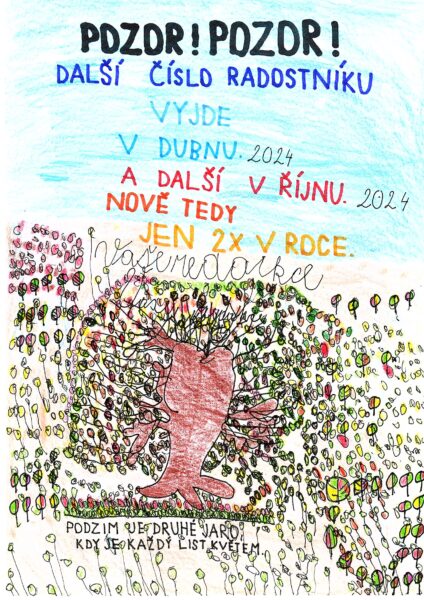 POZOR! POZOR!
DALŠÍ ČÍSLO RADOSTNÍKU
VYJDE
V DUBNU. 2024
A DALŠÍ V ŘÍJNU. 2024
NOVĚ TEDY
JEN 2X V ROCE.
Vašeredaktorka
PODZIM JE DRUHÉ JARO,
KDY JE KAŽDÝ LIST KVĚTEM.